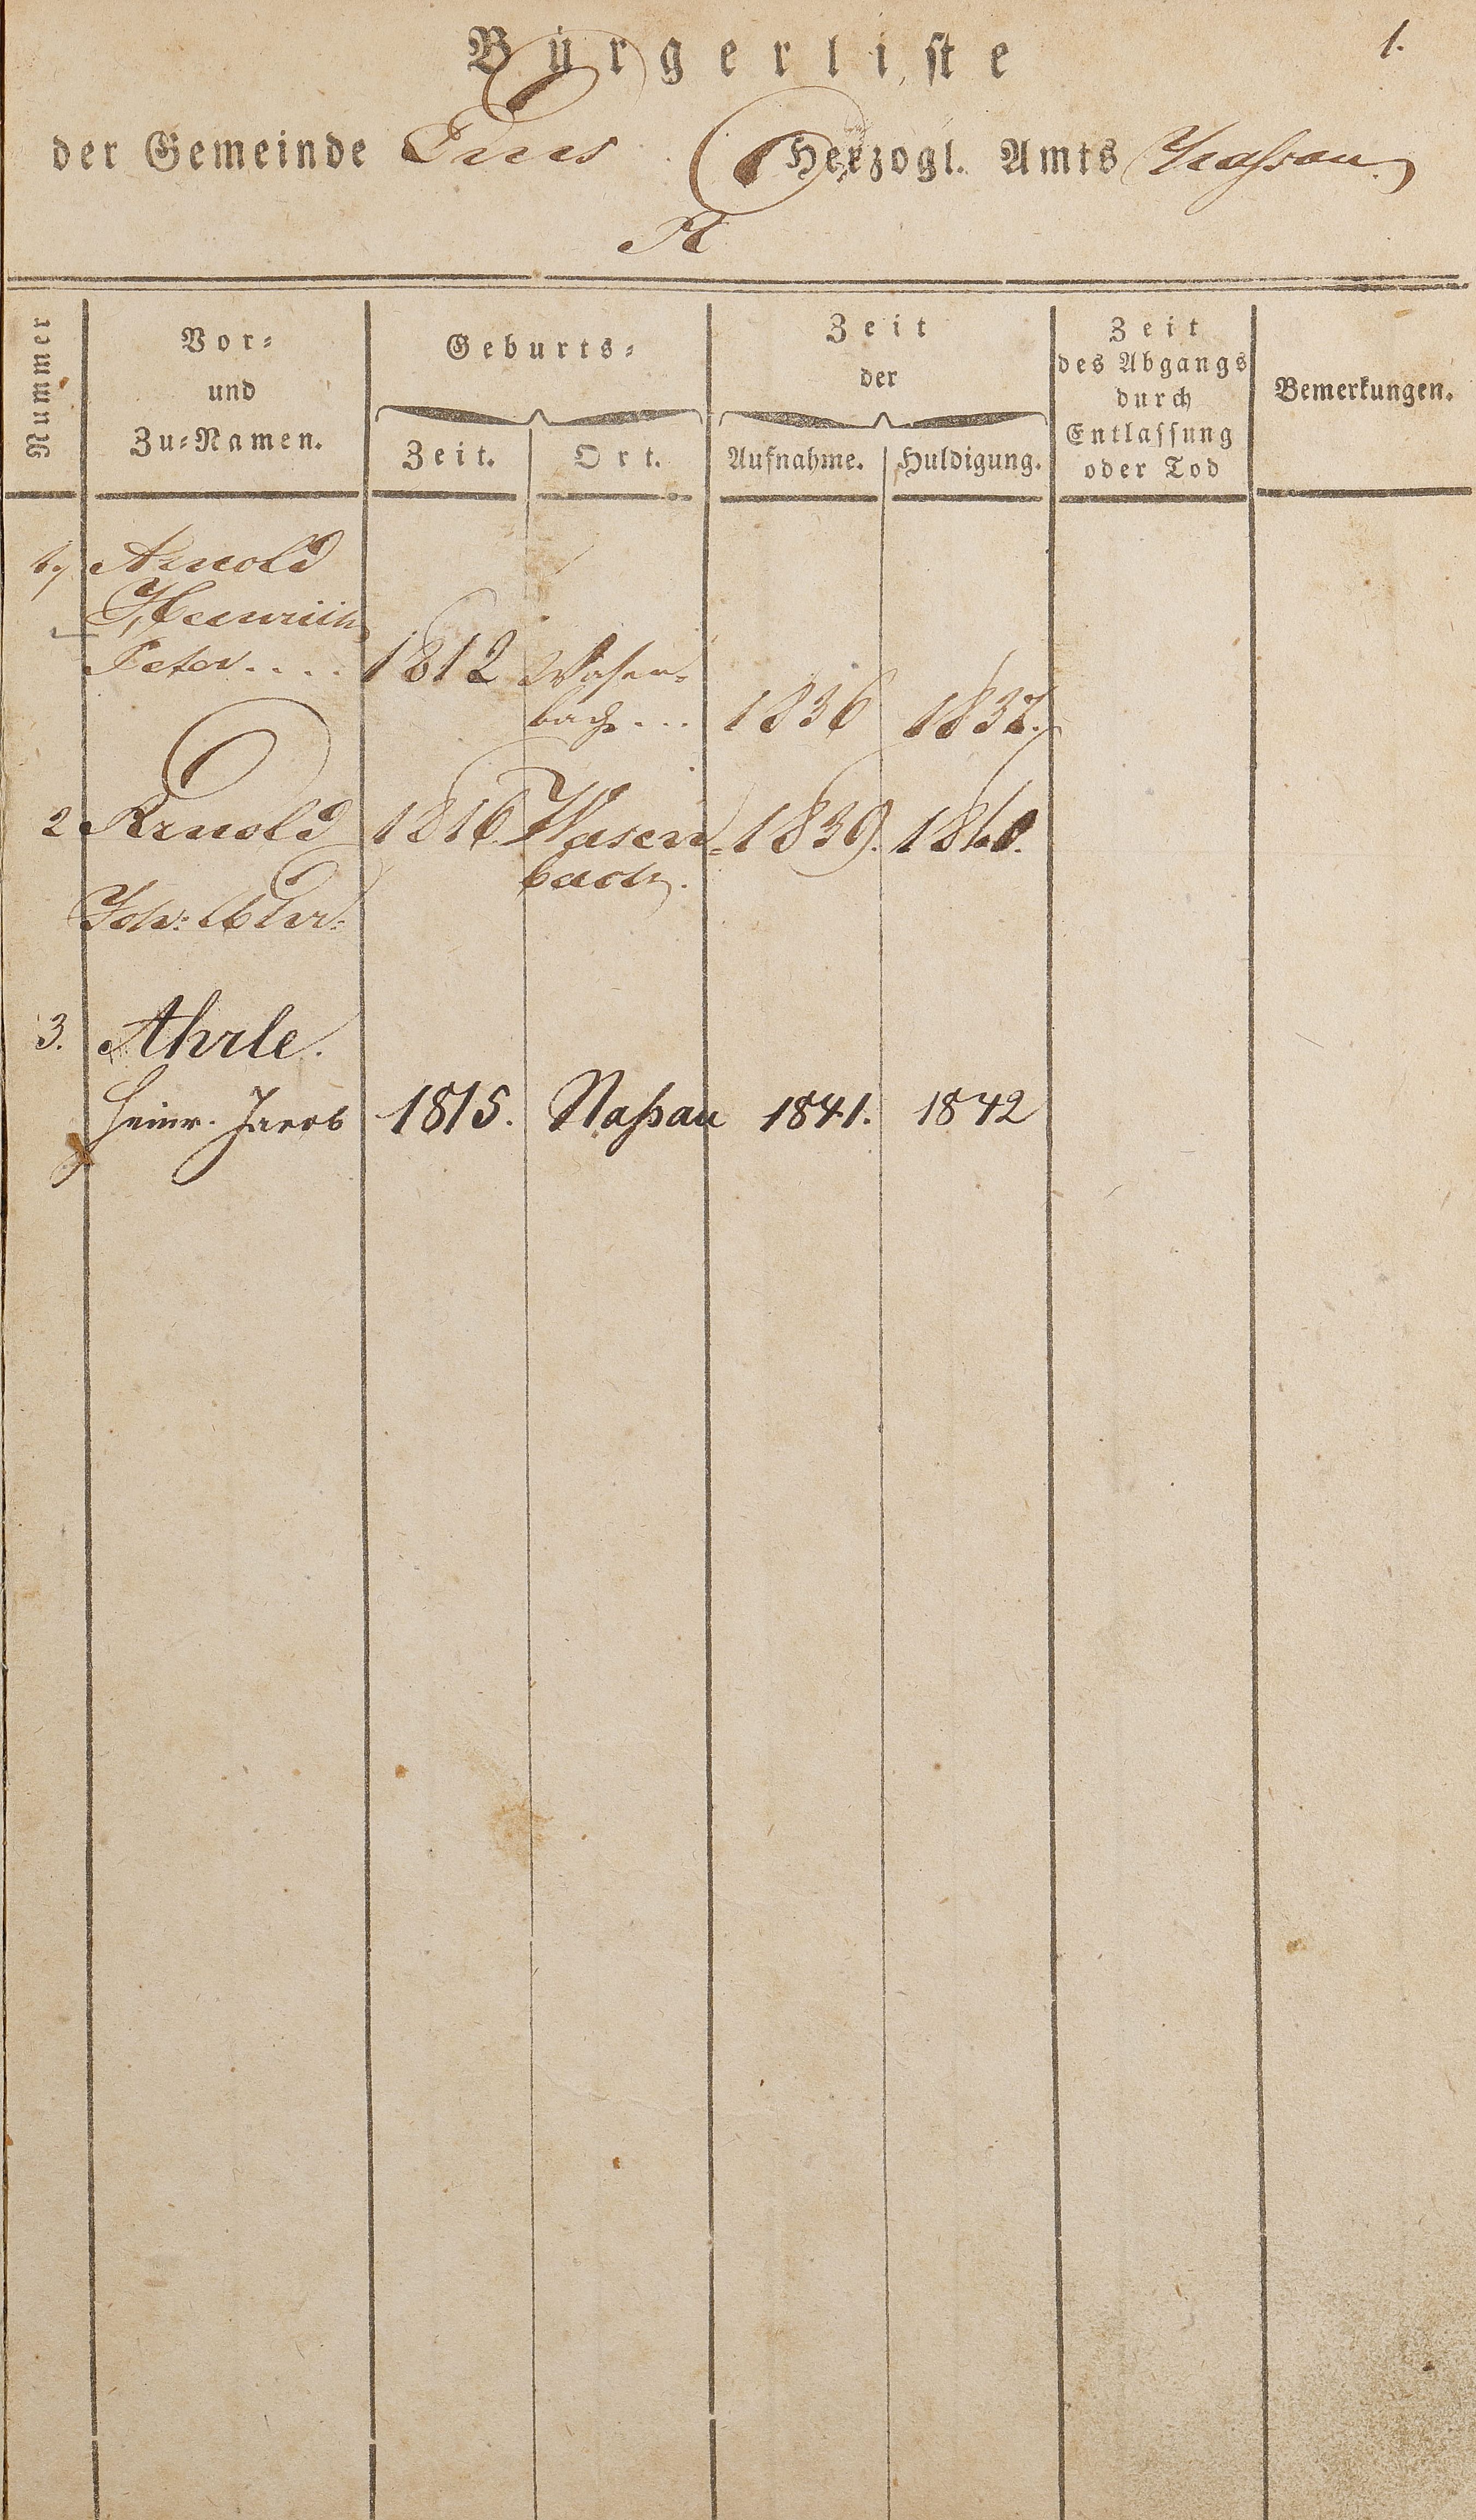 1.
Bürgerliste
der Gemeinde Ems Herzogl. Amts Naßau
A
Nummer
Vor-
und
Zu-Namen.
Geburts-
Zeit. Ort.
Zeit
der
Aufnahme. Huldigung.
Zeit
des Abgangs
durch
Entlassung
oder Tod
Bemerkungen.
1, Arnold
Heinrich
Peter.... 1812 Wasen-
bach... 1836 1837.
2 Arnold 1816. Wasen- 1839. 1840.
bach.
Joh: Chr:
3. Ahrle.
Heinr. Jacob 1815. Naßau 1841. 1842